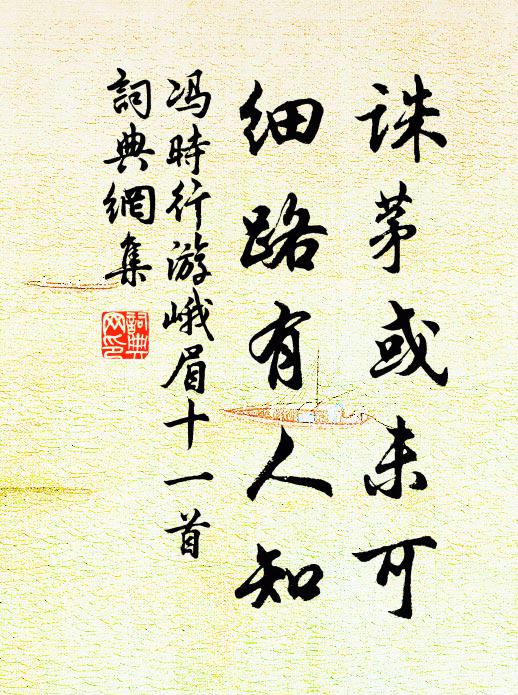 诛茅或未可
细路有人知
冯時行游峨眉十一首
詞典網集
詞典網印